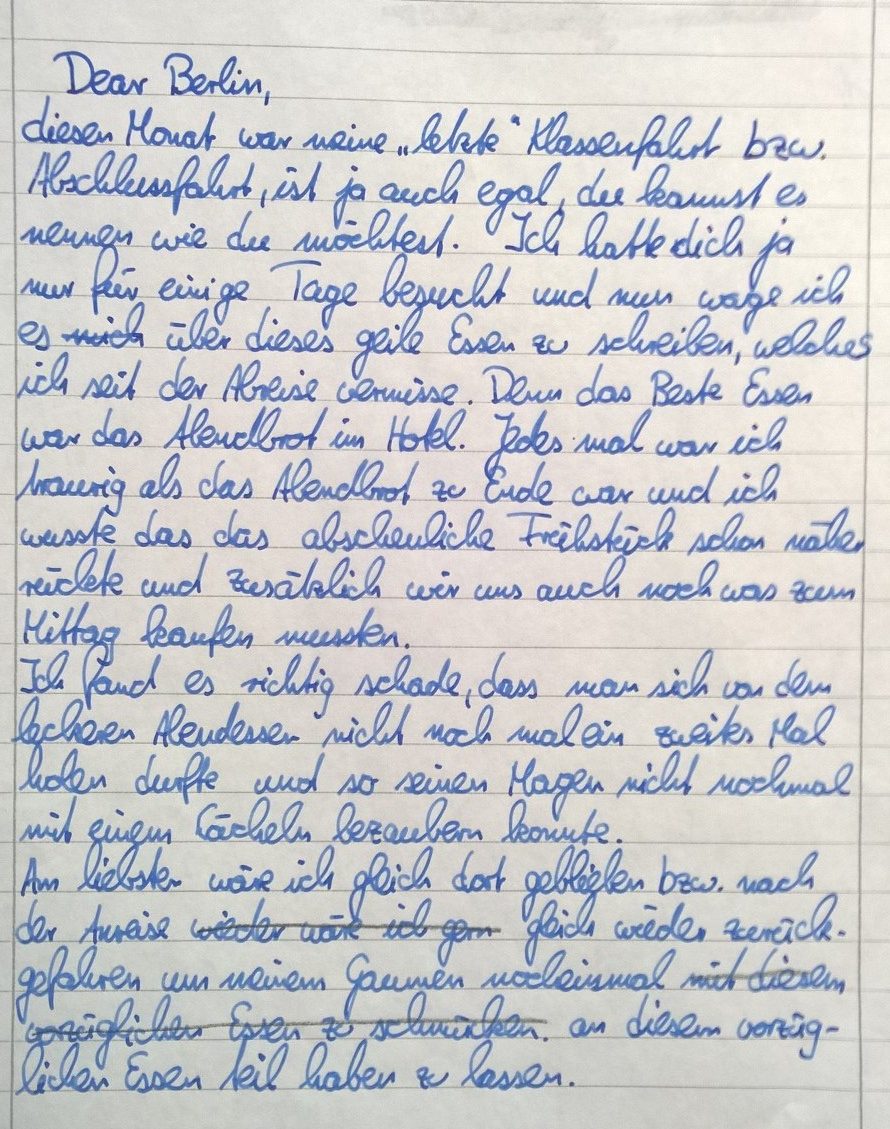 Dear Berlin,
diesen Monat war meine „letzte“ Klassenfahrt bzw.
Abschlussfahrt, ist ja auch egal, du kannst es
nennen wie du möchtest. Ich hatte dich ja
nur für einige Tage besucht und nun wage ich
es mich über dieses geile Essen zu schreiben, welches
ich seit der Abreise vermisse. Denn das Beste Essen
war das Abendbrot im Hotel. Jedes mal war ich
traurig als das Abendbrot zu Ende war und ich
wusste das das abscheuliche Frühstück schon näher
rückte und zusätzlich wir uns auch noch was zum
Mittag kaufen mussten.
Ich fand es richtig schade, dass man sich von dem
leckeren Abendessen nicht noch mal ein zweites Mal
holen durfte und so seinen Magen nicht nochmal
mit einem Lächeln bezaubern konnte.
Am liebsten wäre ich gleich dort geblieben bzw. nach
der Anreise wieder wäre ich gern gleich wieder zurück-
gefahren um meinem Gaumen nocheinmal mit diesem
vorzüglichen Essen zu schmücken. an diesem vorzüg-
lichen Essen teil haben zu lassen.